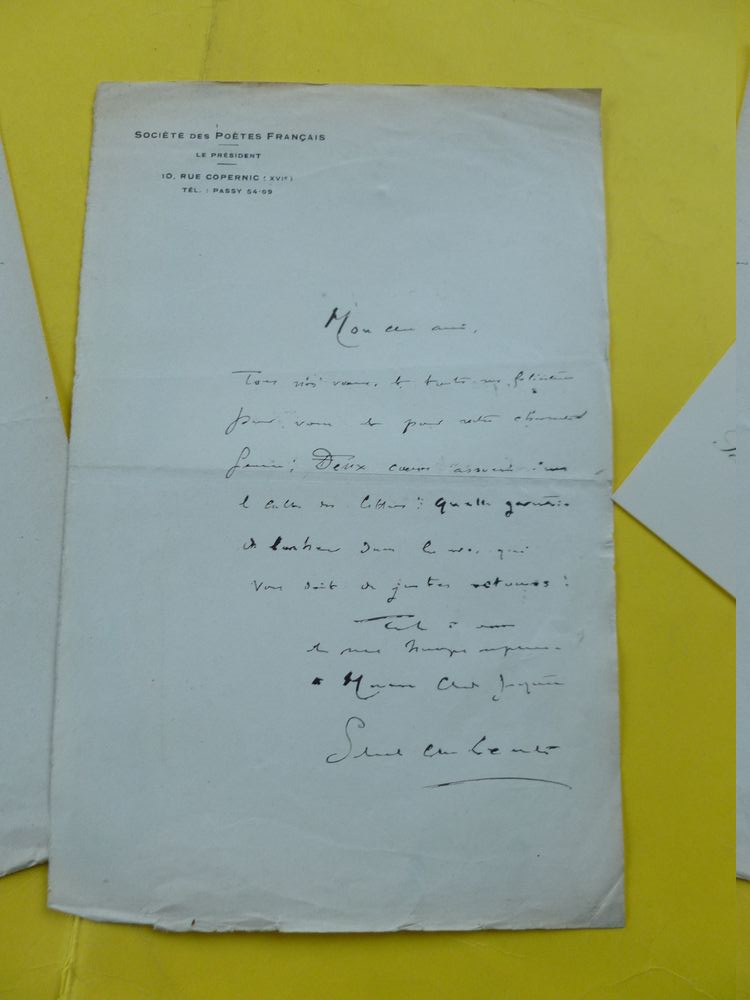 SOCIÉTÉ DES POÈTES FRANÇAIS
LE PRÉSIDENT
10, RUE COPERNIC (XVIe)
TÉL. : PASSY 54-09
Mon cher ami,
Tous nos voeux, et toutes nos félicitations
pour vous et pour votre charmante
femme; Deux coeurs associés dans
le culte des lettres! Quelle garantie
de bonheur dans la vie, qui
vous doit de justes retours!
à vous
et mes hommages
à Madame